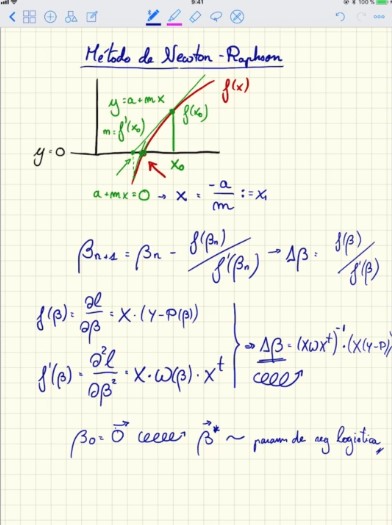 9:41
100 %
Método de Newton-Raphson
y=a+mx
f(x)
m=f'(x₀)
f(x₀)
y=0
x₀
a+mx=0 → x = -a/m := x₁
βn+1 = βn - f(βn)/f'(βn) → Δβ = f(β)/f'(β)
f(β) = ∂l/∂β = X·(Y-P(β))
f'(β) = ∂²l/∂β² = X·W(β)·Xᵗ
⇒ Δβ = (XWXᵗ)⁻¹·(X(Y-P))
β₀ = 0⃗ β⃗* ~ param de reg logística